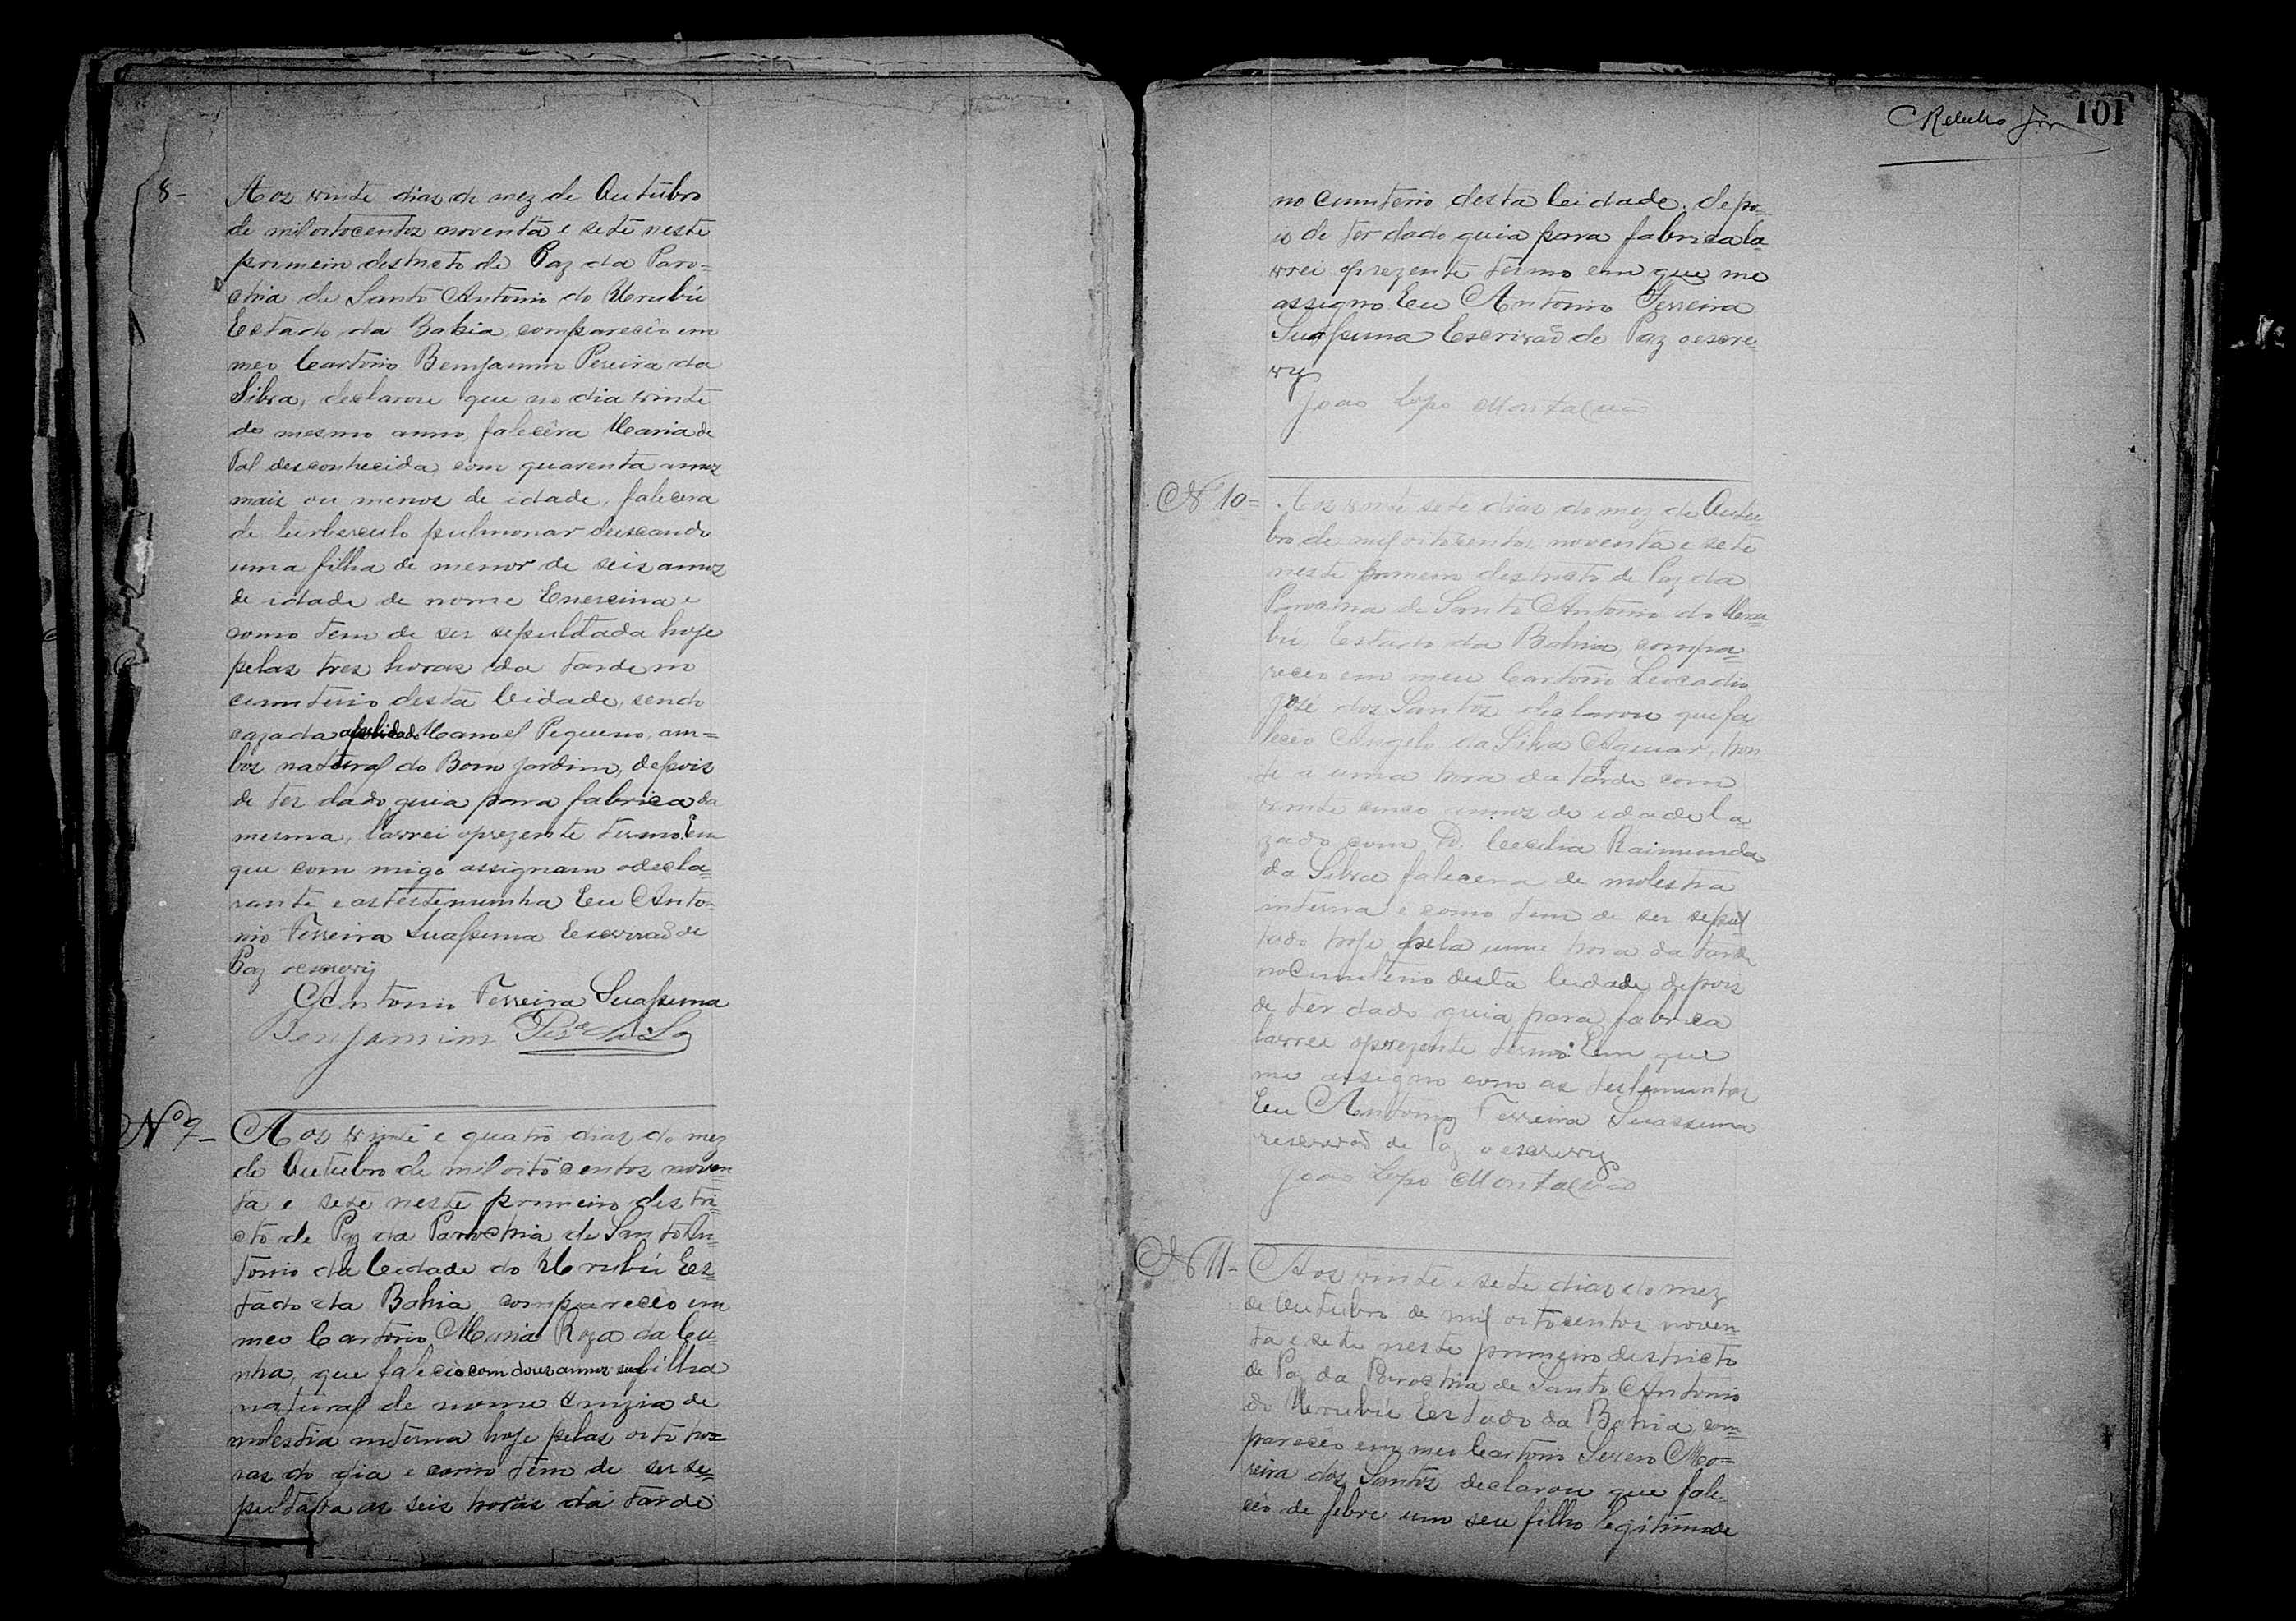 8- Aos vinte dias do mez de Outubro
de mil oitocentos noventa e sete neste
primeiro destricto de Paz da Paro=
chia de Santo Antonio do Urubú
Estado da Bahia, compareceo em
meo Cartorio Benjamim Pereira da
Silva, declarou que no dia vinte
do mesmo anno, falecêra Maria de
Tal desconhecida com quarenta annos
mais ou menos de idade, falecera
de turberculo pulmonar deixando
uma filha de menor de seis annos
de idade de nome e
como tem de ser sepultada hoje
pelas tres horas da tarde no
cimiterio desta Cidade, sendo
cazada Manoel Pequeno, am=
bos natural do Bom Jardim, depois
de ter dado guia para fabrica da
mesma, larrei oprezente termo. Em
que com migo assignam odecla=
rante e astestemunha Eu Anto=
nio Ferreira Suassuna Escrivaõ de
Paz oescrevy
Antonio Ferreira Suassuna
Benjamim Per.ª da S.ª
Nº 9- Aos vinte e quatro dias do mez
de Outubro de mil oito centos noven=
ta e sete neste primeiro destri=
cto de Paz da Parochia de Santo An=
tonio da Cidade do Urubú Es=
tado da Bahia, compareceo em
meo Cartorio Maria Roza da Cu=
nha, que faleceo com dous annos sua filha
natural de nome de
molestia interna hoje pelas oito ho=
ras do dia e como tem de ser se=
pultada as seis horas da tarde
101
no cimiterio desta Cidade. depo=
is de ter dado guia para fabrica la=
vrei oprezente termo em que me
assigno Eu Antonio Ferreira
Suassuna Escrivaõ de Paz oescre=
vy
João Lopo Montalvão
Nº 10= Aos vinte sete dias do mez de Outu=
bro de mil oitocentos noventa e sete
neste primeiro destricto de Paz da
Parochia de Santo Antonio do Uru=
bú, Estado da Bahia, compa=
receo em meu Cartorio Leocadio
José dos Santos declarou que fa
leceo Angelo da Silva Aguiar, hon
te a uma hora da tarde com
vinte cinco annos de idade Ca
zado com D. Cecilia Raimunda
da Silva falecera de molestia
interna e como tem de ser sepul
tado hoje pela uma hora da tarde
no Cimiterio desta Cidade depois
de ter dado guia para fabrica
larrei oprezente termo. Em que
me assigno com as testemunhas
Eu Antonio Ferreira Suassuna
escrivaõ de Paz o escrevy
João Lopo Montalvão
N 11- Aos vinte e sete dias do mez
de Outubro de mil oitocentos noven=
ta e sete neste primeiro destricto
de Paz da Parochia de Santo Antonio
do Urubú Estado da Bahia, com=
pareceo em meo Cartorio Sereno Mo=
reira dos Santos declarou que fale=
ceo de febre um seu filho legitimo de